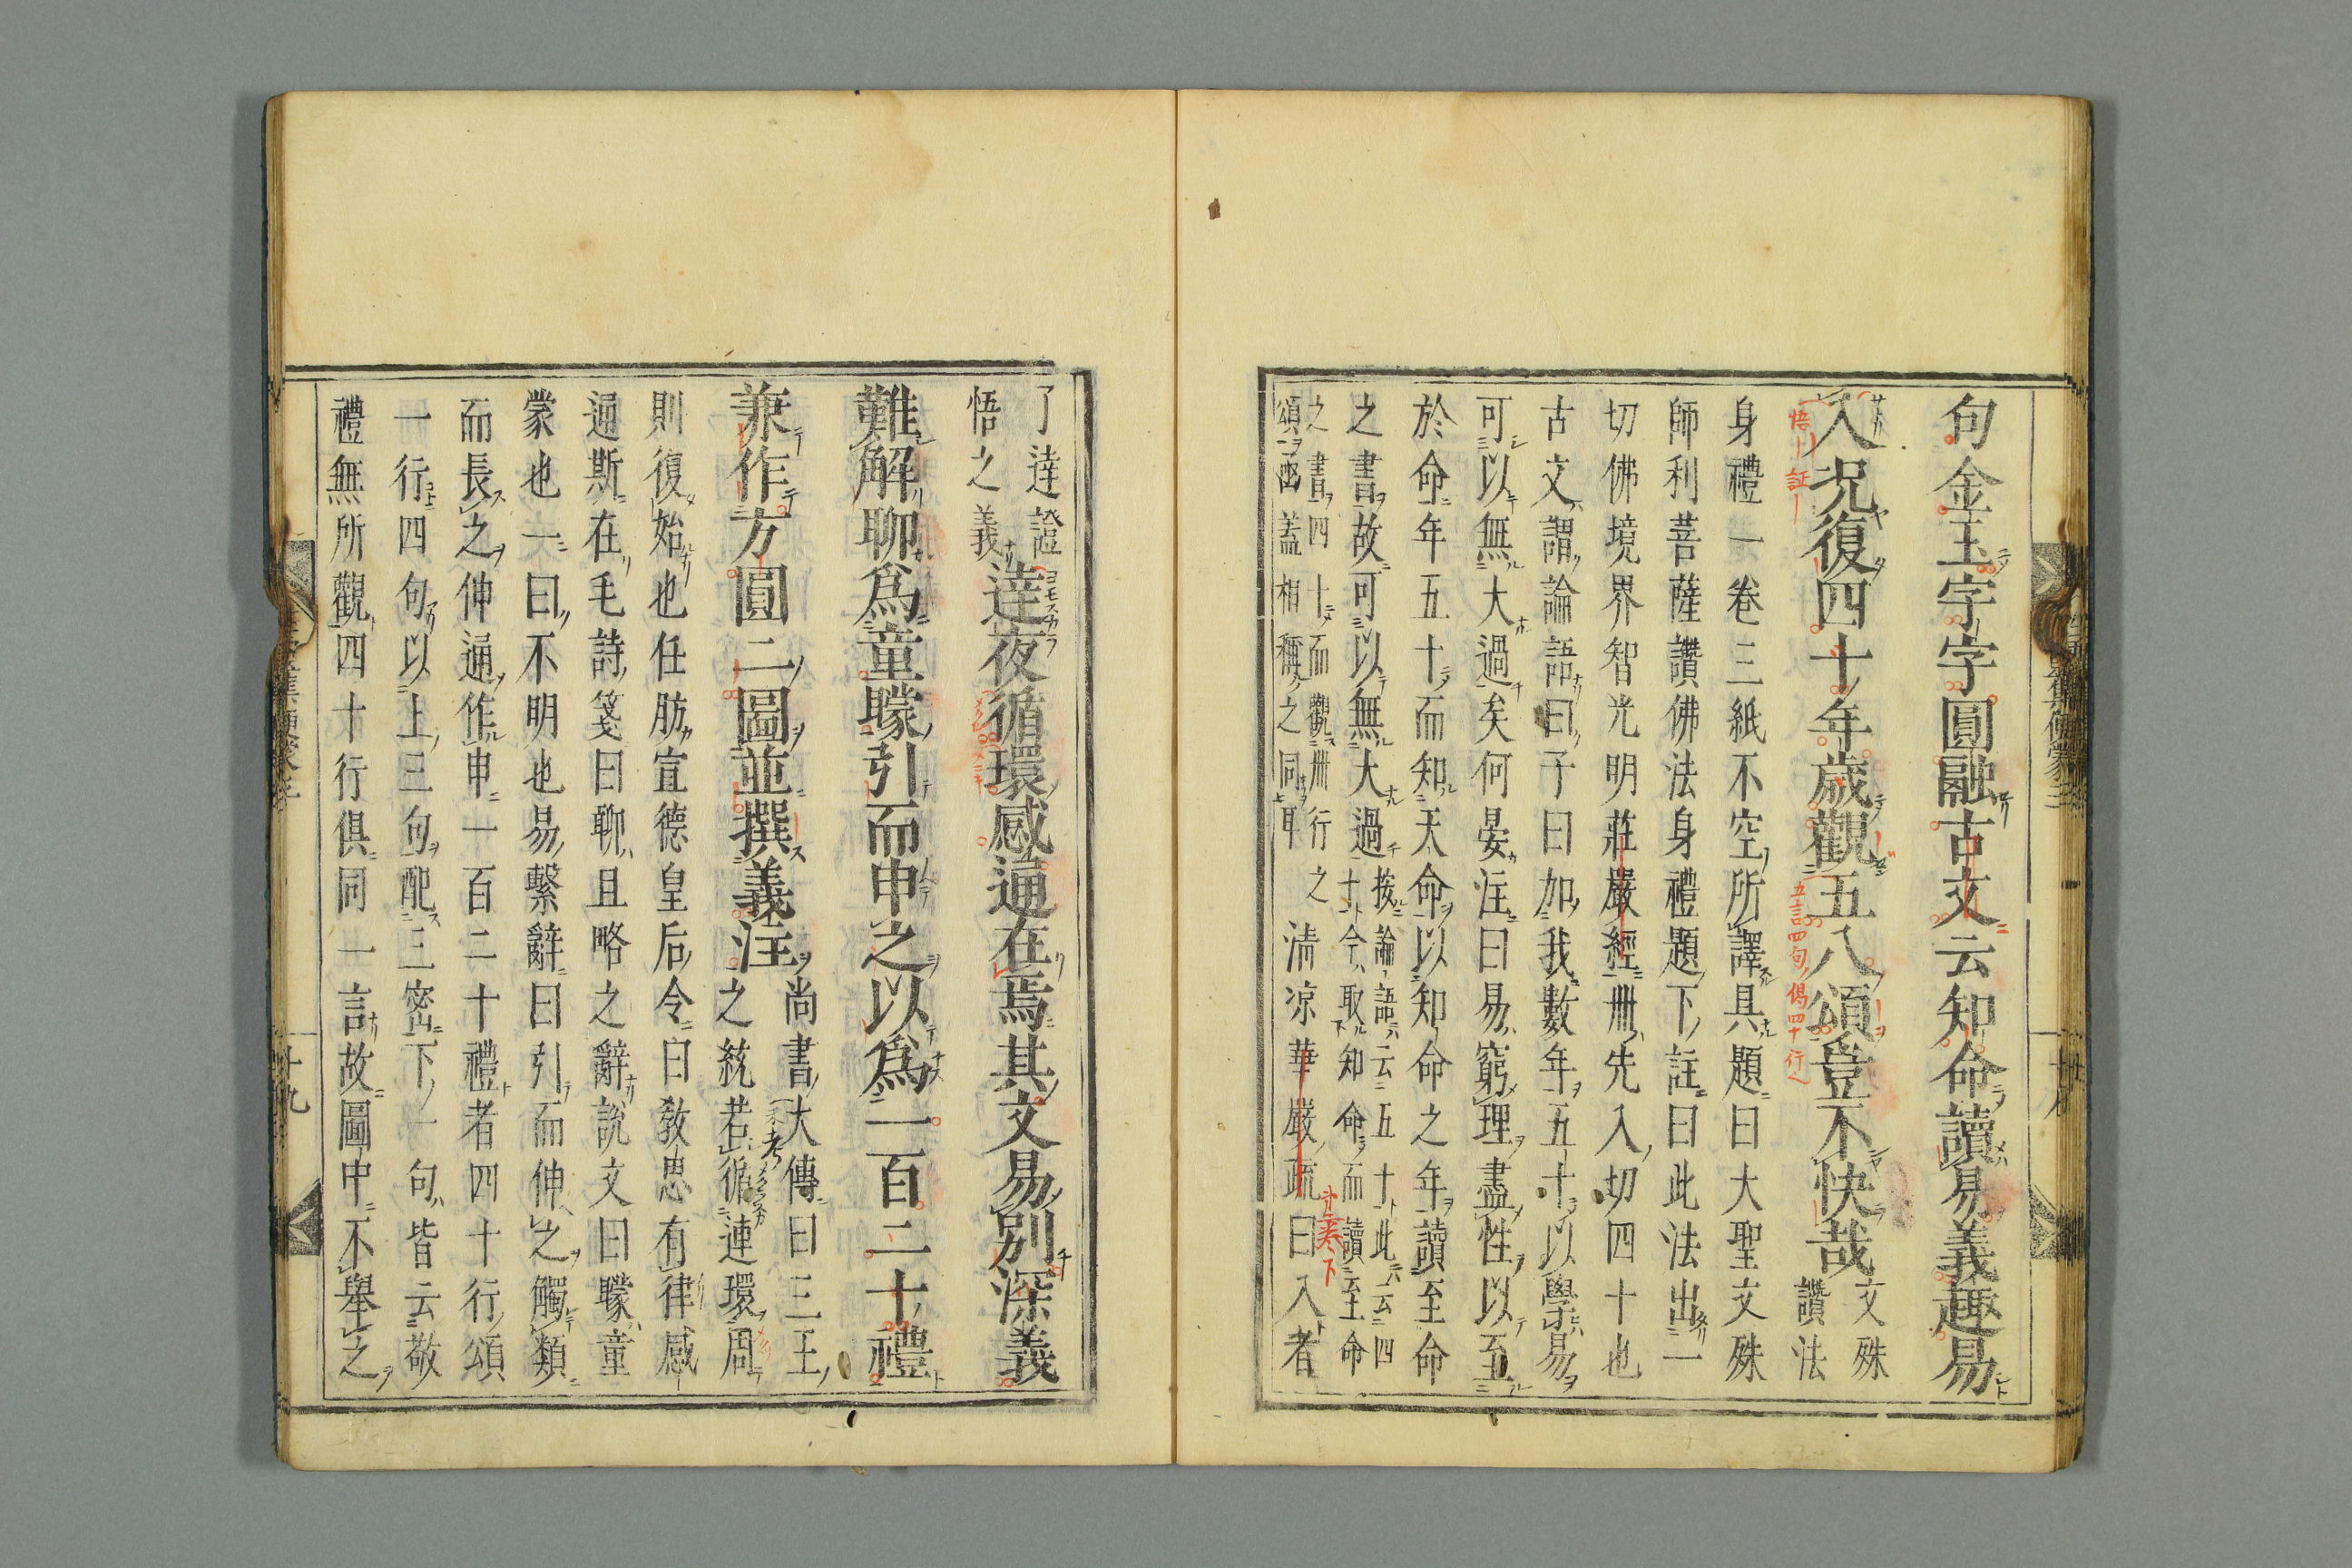 句金玉字字圓融古文云知命讀易義趣易
入況復四十年歲觀五八頌豈不快哉
文殊
讚法
身禮一卷三紙不空所譯具題曰大聖文殊
師利菩薩讚佛法身禮題下註曰此法出一
切佛境界智光明莊嚴經卌先入切四十也
古文謂論語曰子曰加我數年五十以學易
可以無大過矣何晏注曰易窮理盡性以至
於命年五十而知天命以知命之年讀至命
之書故可以無大過
按論語云五十此云四
十今取知命而讀至命
之書四十而觀卌行之
頌函蓋相稱之同耳
清凉華嚴疏曰入者
了達證
悟之義
達夜循環感通在焉其文易別深義
難解聊爲童矇引而申之以爲一百二十禮
兼作方圓二圖並撰義注
尚書大傳曰三王
之統若循連環周
則復始也任肪宣德皇后令曰敎思有律感
通斯在毛詩箋曰聊且略之辭說文曰矇童
蒙也一曰不明也易繫辭曰引而伸之觸類
而長之伸通作申一百二十禮者四十行頌
一行四句以上三句配三密下一句皆云敬
禮無所觀四十行俱同一言故圖中不舉之
十九